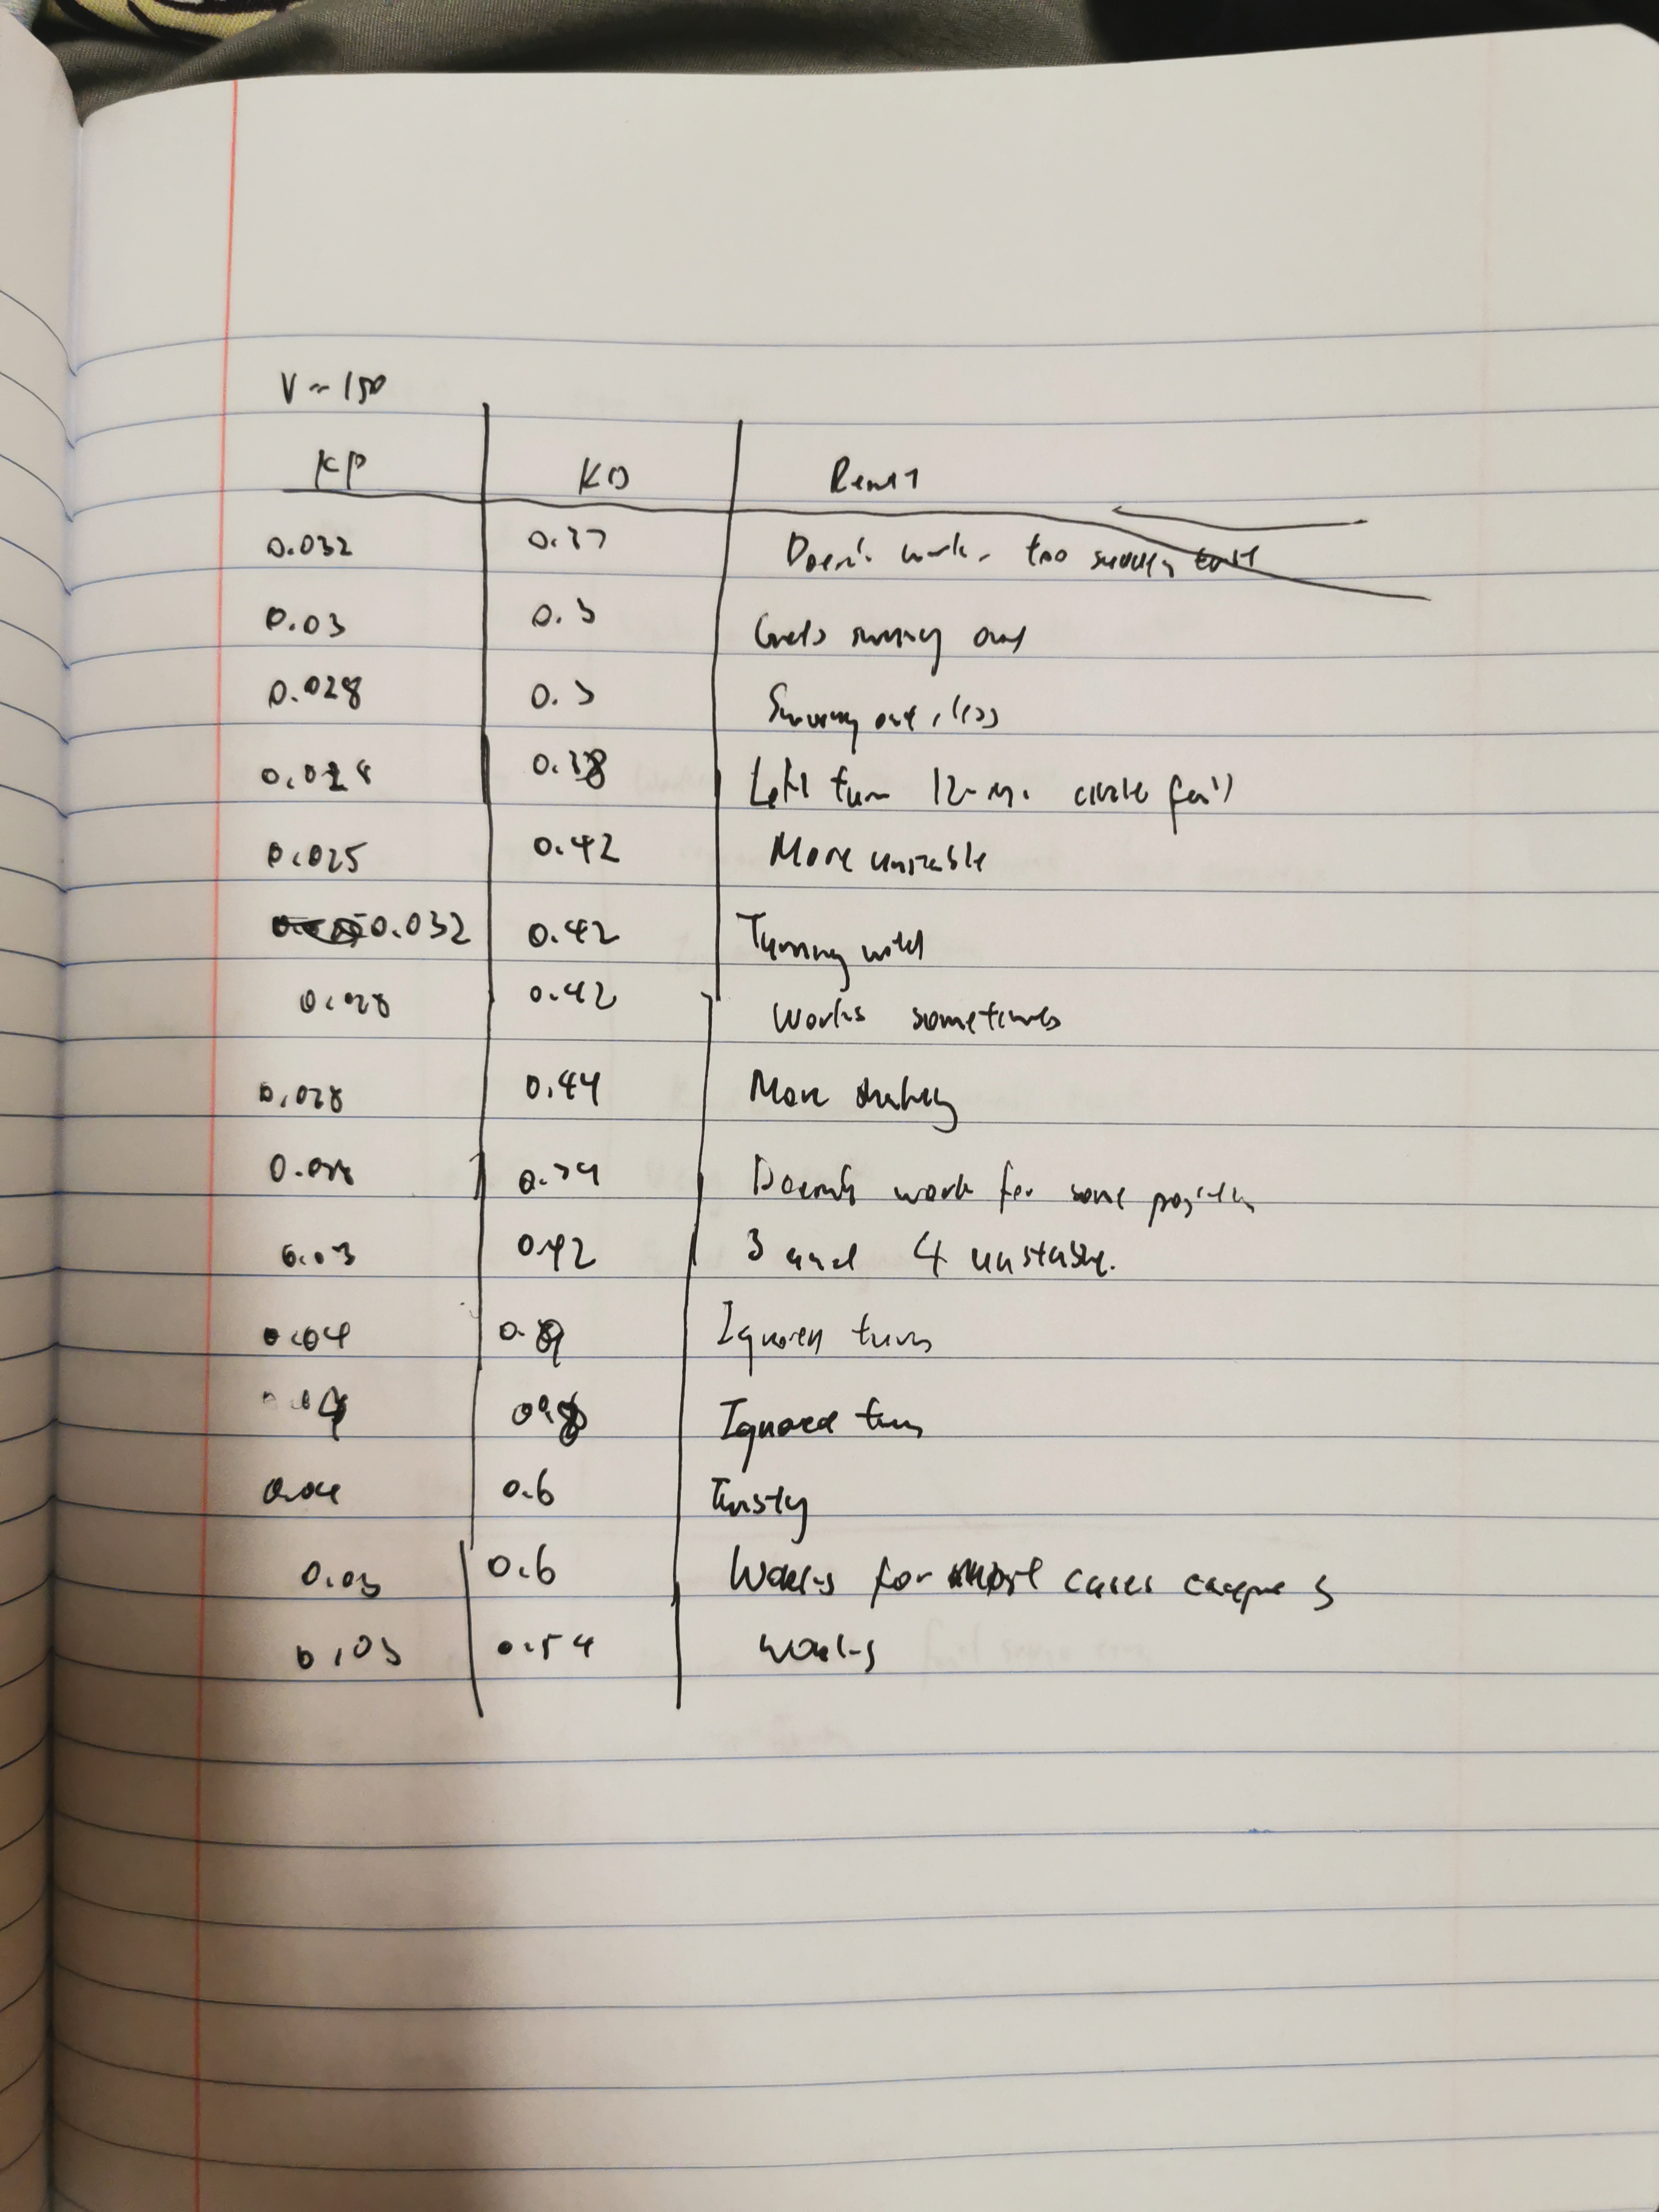 V = 150
KP KD Result
0.032 0.37 Doesn't work. too
0.03 0.3 Gets out
0.028 0.3 out, less
0.028 0.38 Left turn circle fail
0.025 0.42 More unstable
0.032 0.42 Turning wild
0.028 0.42 Works sometimes
0.028 0.44 More
0.39 Doesn't work for some position
0.03 0.42 3 and 4 unstable.
0.04 Ignored turns
Ignored turn
0.04 0.6 Twisty
0.03 0.6 Works for most cases except 3
0.03 0.54 Works